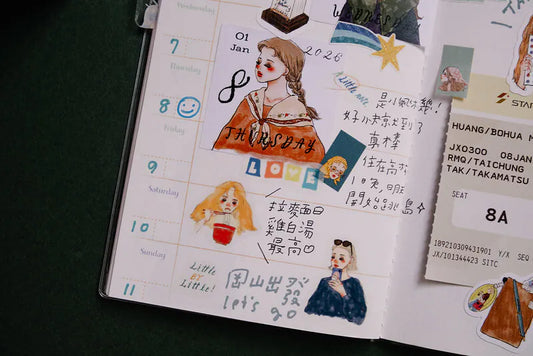 Wednesday
7
Thursday
8
Friday
9
Saturday
10
Sunday
11
01
Jan
2026
8
THURSDAY
LOVE
A little note
好
真棒
住在高松
1晚,明
開始跳島
拉麵日
雞白湯
最高
Little
by
Little!
岡山出
let's go
STAR
HUANG/BOHUA M
JX0300 08JAN
RMQ/TAICHUNG
TAK/TAKAMATSU
SEAT
8A
189210309431901 Y/X SEQ
JX/101344423 SITC